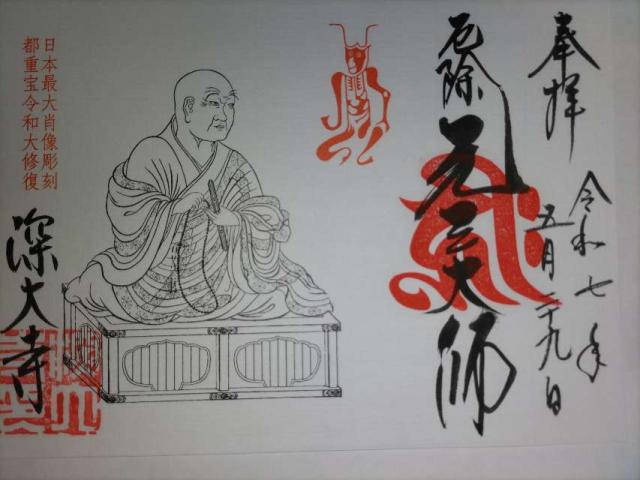 奉拝
令和七年
五月二十九日
厄除元三大師
日本最大肖像彫刻
都重宝令和大修復
深大寺